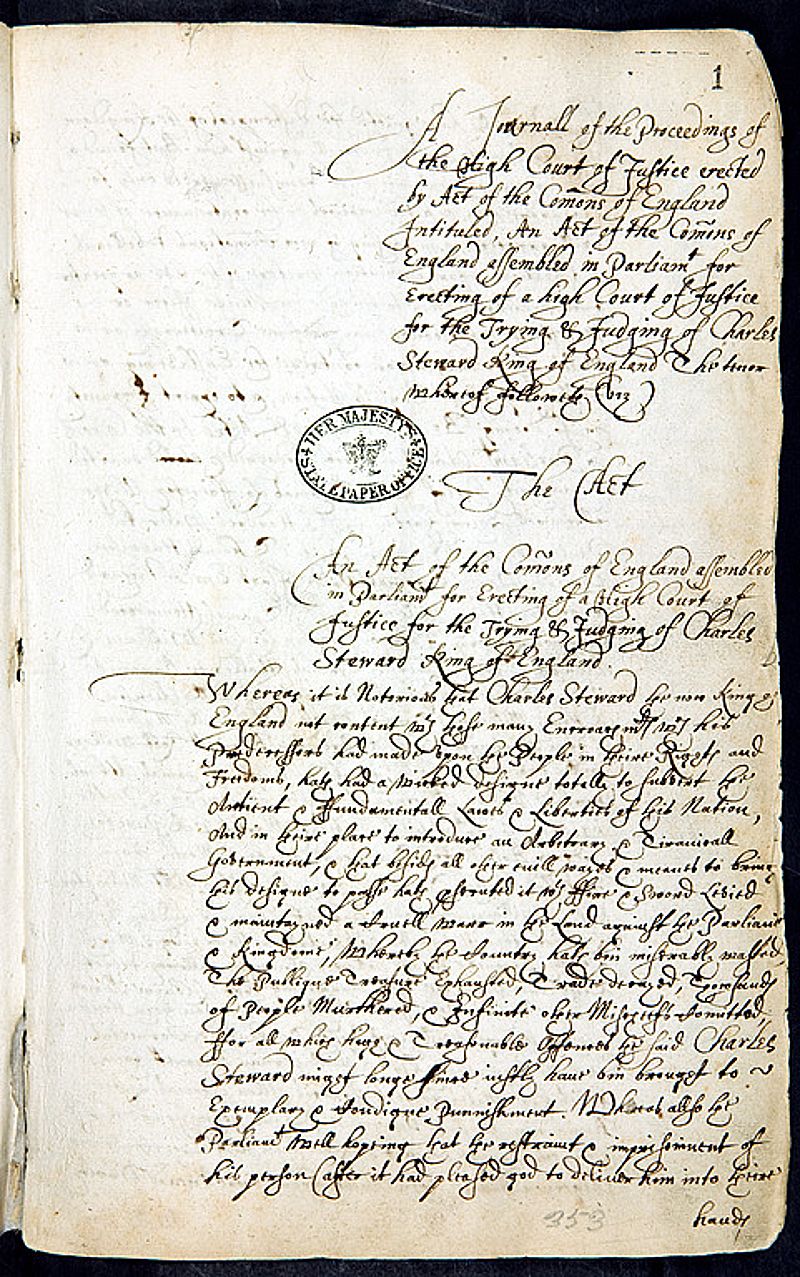 1
A Journall of the Proceedings of
the High Court of Justice erected
by Act of the Com̃ons of England
Intituled, An Act of the Com̃ons of
England assembled in Parliamt for
Erecting of a high Court of Justice
for the Trying & Judging of Charles
Steward King of England The tenor
whereof followeth (viz)
HER MAJESTY'S STATE PAPER OFFICE
The Act
An Act of the Com̃ons of England assembled
in Parliamt for Erecting of a High Court of
Justice for the Trying & Judging of Charles
Steward King of England.
Whereas it is Notorious that Charles Steward the now King of
England not content wth those many Encroachmts wch his
Predecessors had made upon the People in theire Rights and
Freedoms, hath had a wicked designe totally to subvert the
Antient & ffundamentall Lawes & Liberties of this Nation,
And in theire place to introduce an Arbitrary & Tiranicall
Government, & that besids all other evill wayes & meanes to bring
this designe to passe hath psecuted it wth ffire & Sword Levied
& maintayned a Cruell warr in the Land against the Parliamt
& Kingdome, Whereby the Country hath bin miserably wasted,
The Publique Treasure Exhausted, Trade decayed, Thowsands
of People Murthered, & Infinite other Mischeifs Comitted,
ffor all which high & Treasonable Offences the said Charles
Steward might longe since iustly haue bin brought to
Exemplary & Condigne Punnishment. Whereas allso the
Parliamt well hopeing that the restraint & imprisoment of
his person (after it had pleased god to deliuer him into theire
hands
353